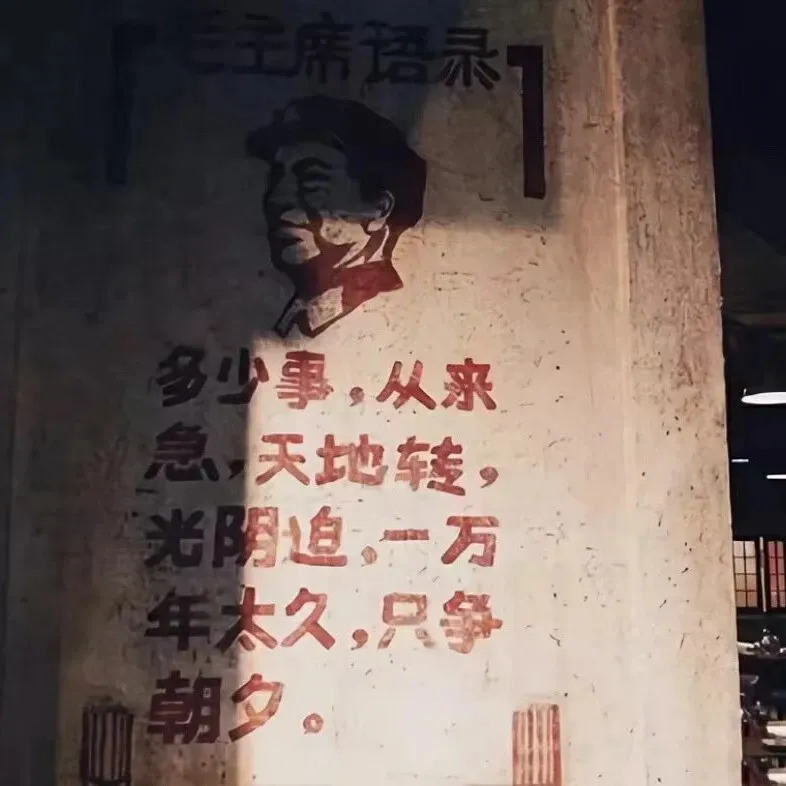 毛主席语录
多少事，从来
急，天地转，
光阴迫，一万
年太久，只争
朝夕。